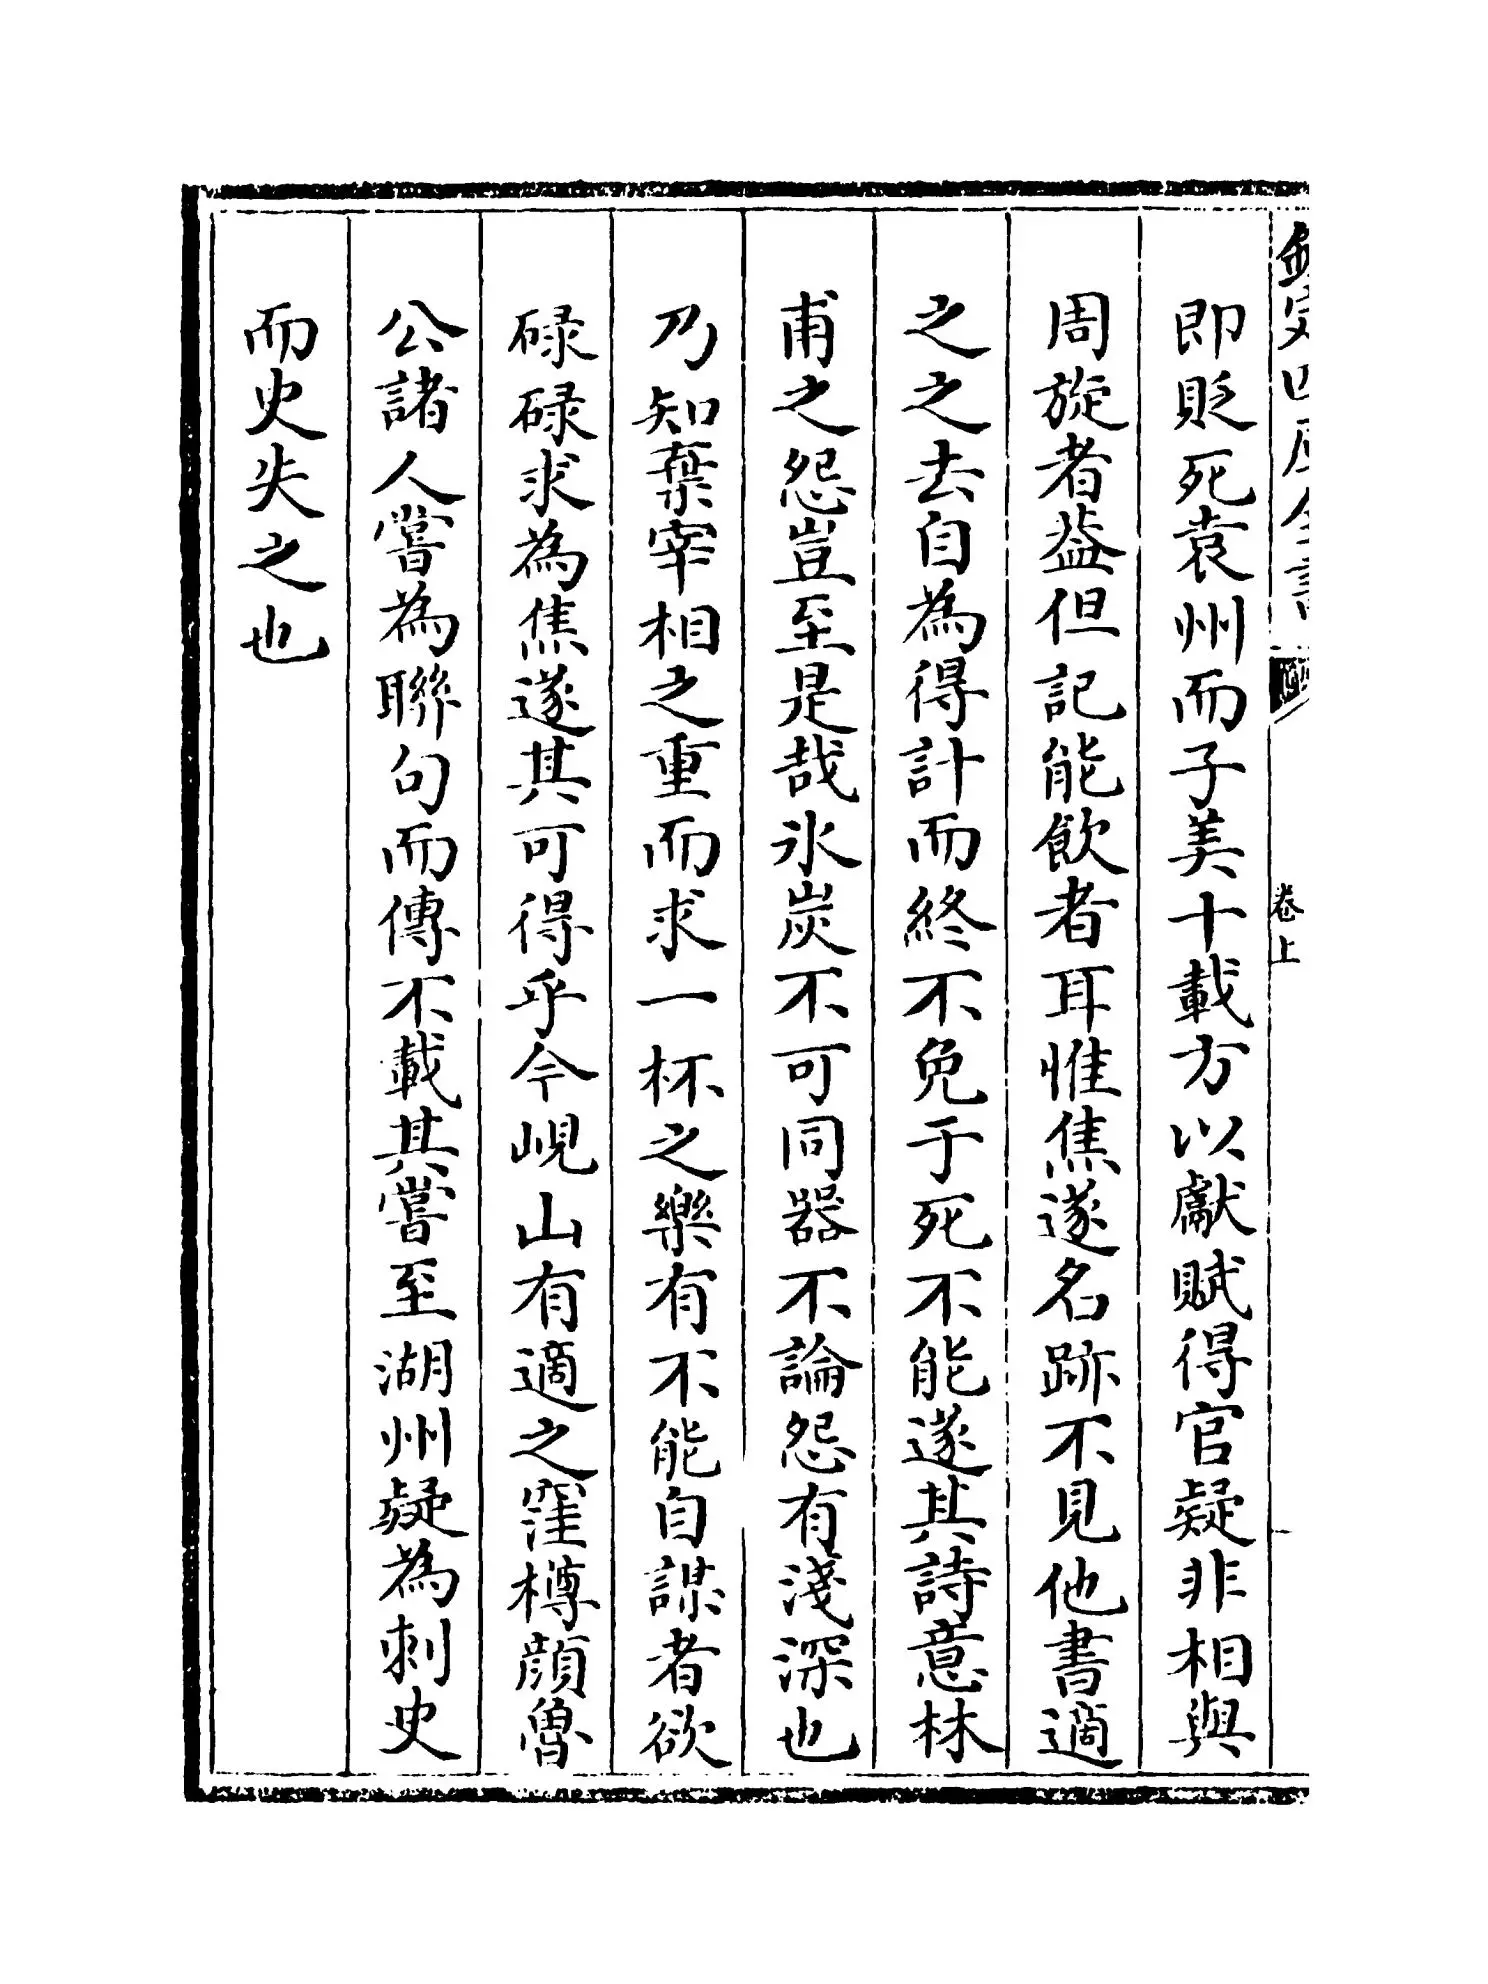 欽定四庫全書
卷上
即貶死袁州而子美十載方以獻賦得官疑非相與
周旋者葢但記能飲者耳惟焦遂名跡不見他書適
之之去自為得計而終不免于死不能遂其詩意林
甫之怨豈至是哉氷炭不可同器不論怨有淺深也
乃知棄宰相之重而求一杯之樂有不能自謀者欲
碌碌求為焦遂其可得乎今峴山有適之窪樽顔魯
公諸人嘗為聯句而傳不載其嘗至湖州疑為刺史
而史失之也